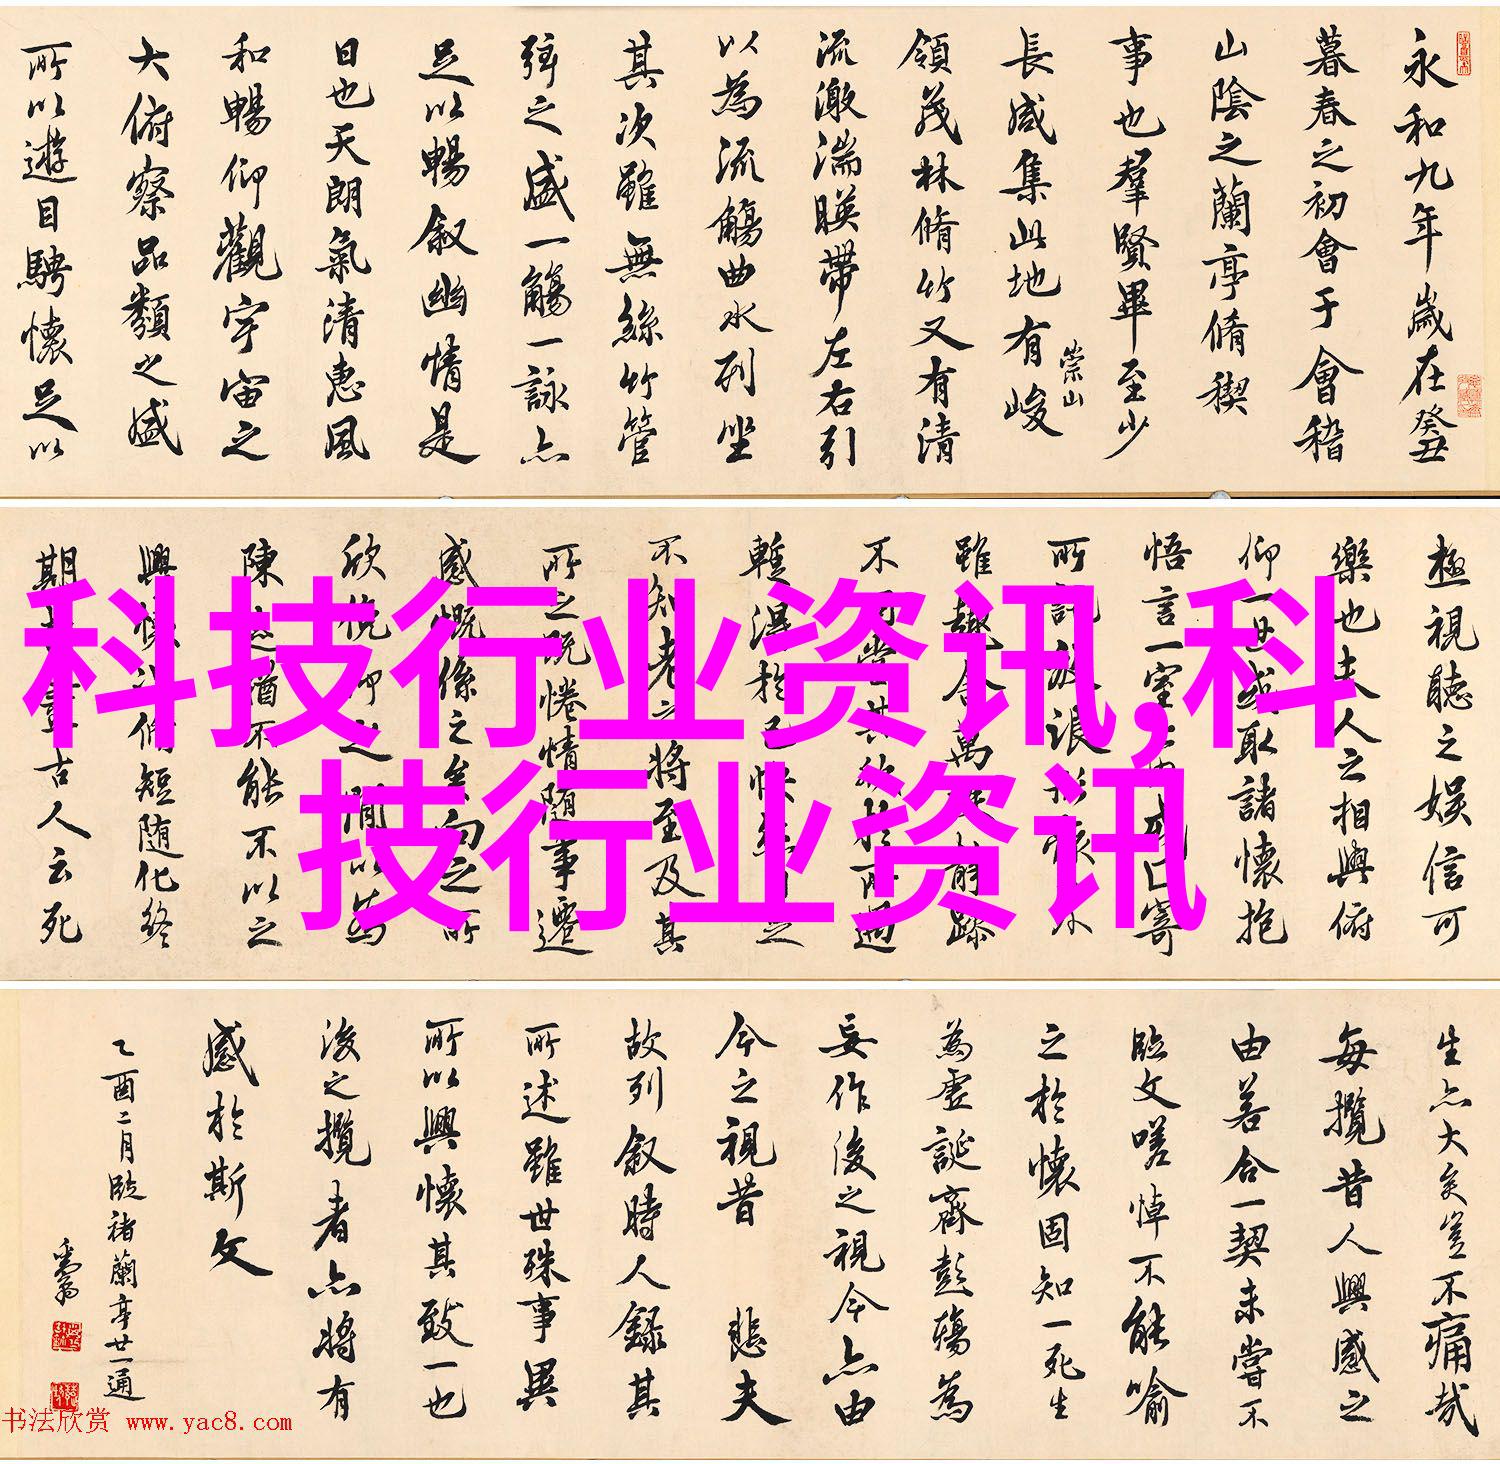 永和九年歲在癸丑
暮春之初會于會稽
山陰之蘭亭脩稧
事也羣賢畢至少
長咸集此地有峻
崇山
領茂林脩竹又有清
流激湍暎帶左右引
以為流觴曲水列坐
其次雖無絲竹管
弦之盛一觴一詠亦
足以暢叙幽情是
日也天朗氣清惠風
和暢仰觀宇宙之
大俯察品類之盛
所以遊目騁懷足以
極視聽之娛信可
樂也夫人之相與俯
仰一世或取諸懷抱
悟言一室
寄
所託
浪
雖趣舍萬
躁
不
當其欣於所遇
暫得於己快
不知老之將至及其
所之既惓情随事遷
感慨係之矣向之所
欣俛仰之間以為
陳迹猶不能不以之
興懷況脩短随化終
期
古人云死
科技行业资讯,科
技行业资讯
生亦大矣豈不痛哉
每攬昔人興感之
由若合一契未嘗不
臨文嗟悼不能喻
之於懷固知一死生
為虛誕齊彭殤為
妄作後之視今亦由
今之視昔 悲夫
故列叙時人錄其
所述雖世殊事異
所以興懷其致一也
後之攬者亦將有
感於斯文
乙酉二月臨褚蘭亭廿一通
书法欣赏 www.yac8.com